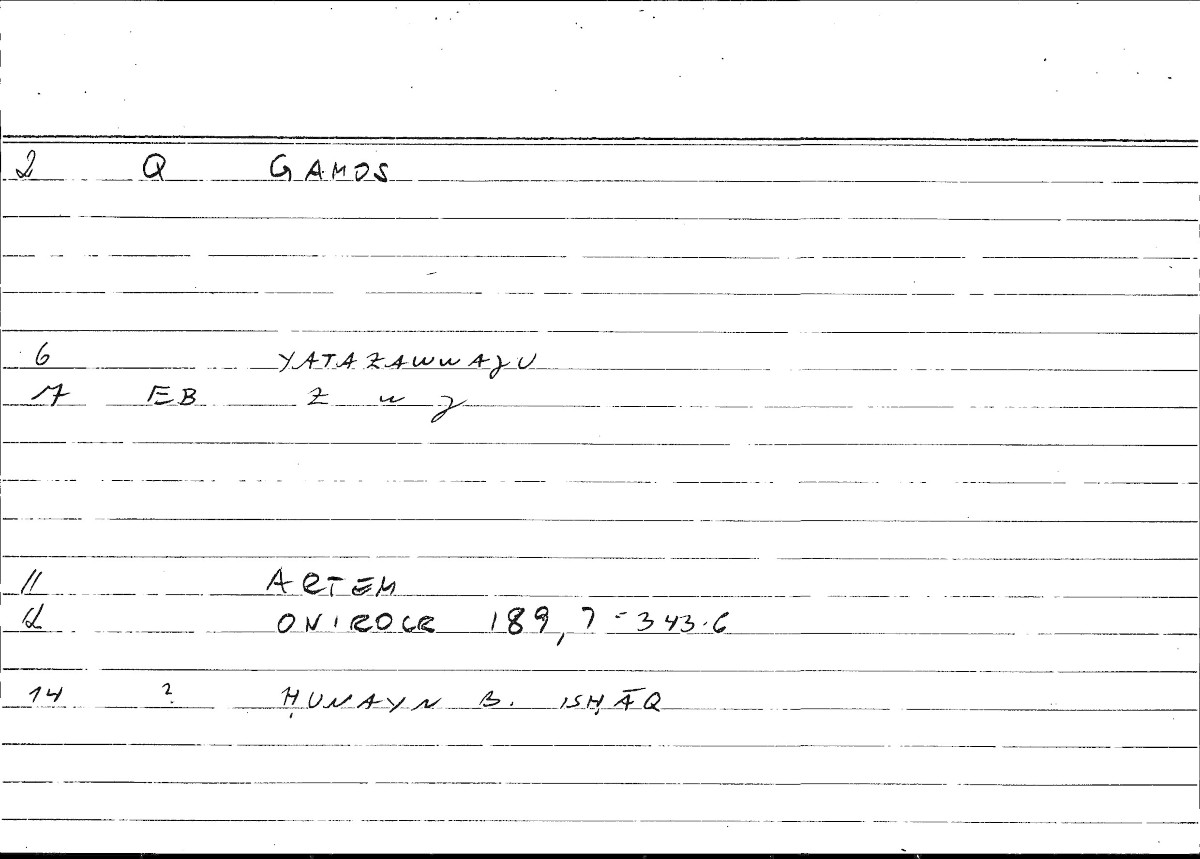 2 Q GAMOS
6 YATAZAWWAJU
7 EB Z w J
11 ARTEM
12 ONIROCR 189,7=343.6
14 ? ḤUNAYN B. ISḤĀQ